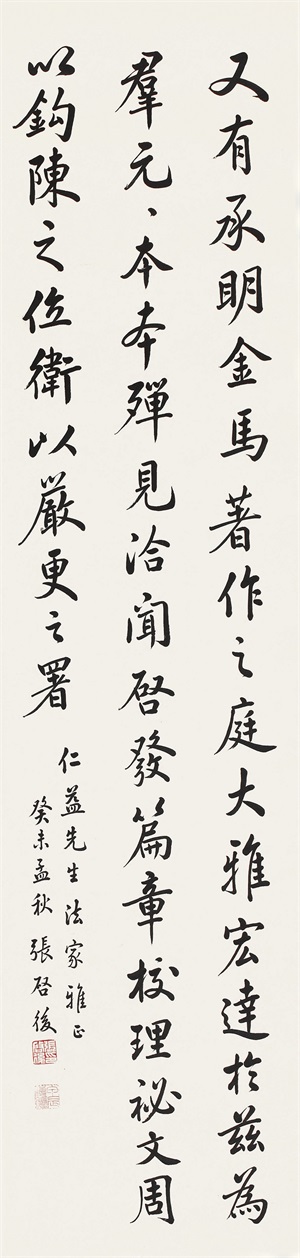 又有承明金馬著作之庭大雅宏達於茲為
羣元〻本本殫見洽聞啓發篇章校理祕文周
以鈎陳之位衛以嚴更之署
仁益先生法家雅正
癸未孟秋張啓後